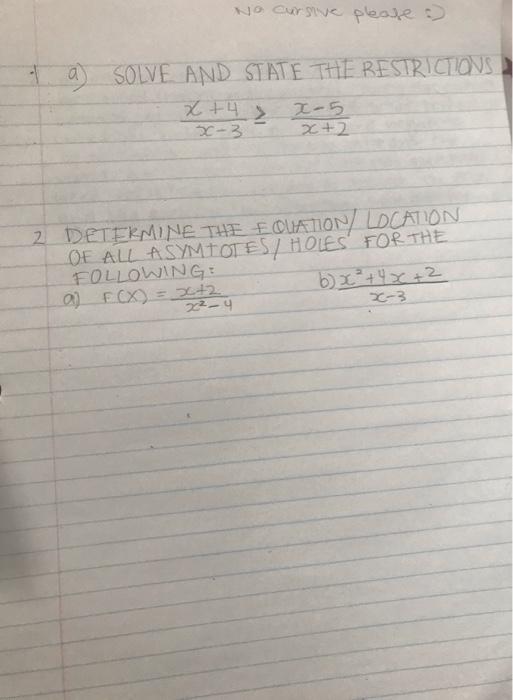 No cursive please :)
1 a) SOLVE AND STATE THE RESTRICTIONS
x+4 ≥ x-5
x-3 x+2
2 DETERMINE THE EQUATION/ LOCATION
OF ALL ASYMTOTES/ HOLES FOR THE
FOLLOWING:
a) F(X) = x+2 / x²-4 b) x²+4x+2 / x-3